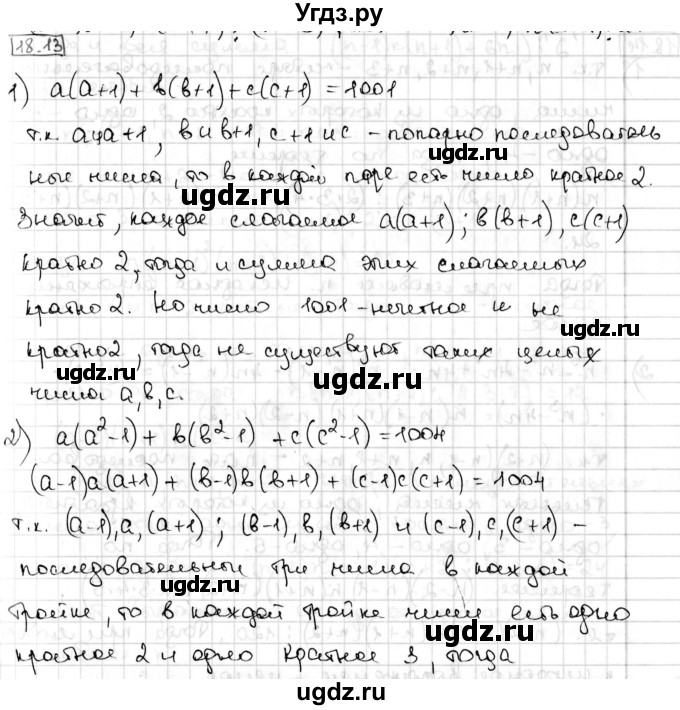 Угдз.ру
18.13
1) a(a+1)+в(в+1)+c(c+1)=1001
т.к. a и a+1, в и в+1, c+1 и c - попарно последователь
ные числа, то в каждой паре есть число кратное 2.
угдз.ру
Значит, каждое слагаемое a(a+1); в(в+1), c(c+1)
кратно 2, тогда и сумма этих слагаемых
угдз.ру
кратно 2. Но число 1001 - нечетное и не
кратно 2, тогда не существуют таких целых
угдз.ру
числа a, в, c.
угдз.ру
2) a(a²-1)+в(в²-1)+c(c²-1)=1004
(a-1)a(a+1)+(в-1)в(в+1)+(c-1)c(c+1)=1004
угдз.ру
т.к. (a-1), a, (a+1); (в-1), в, (в+1) и (c-1), c, (c+1) -
последовательныи три числа в каждой
угдз.ру
тройке, то в каждой тройке чисел есть одно
угдз.ру
кратное 2 и одно кратное 3, тогда
угдз.ру